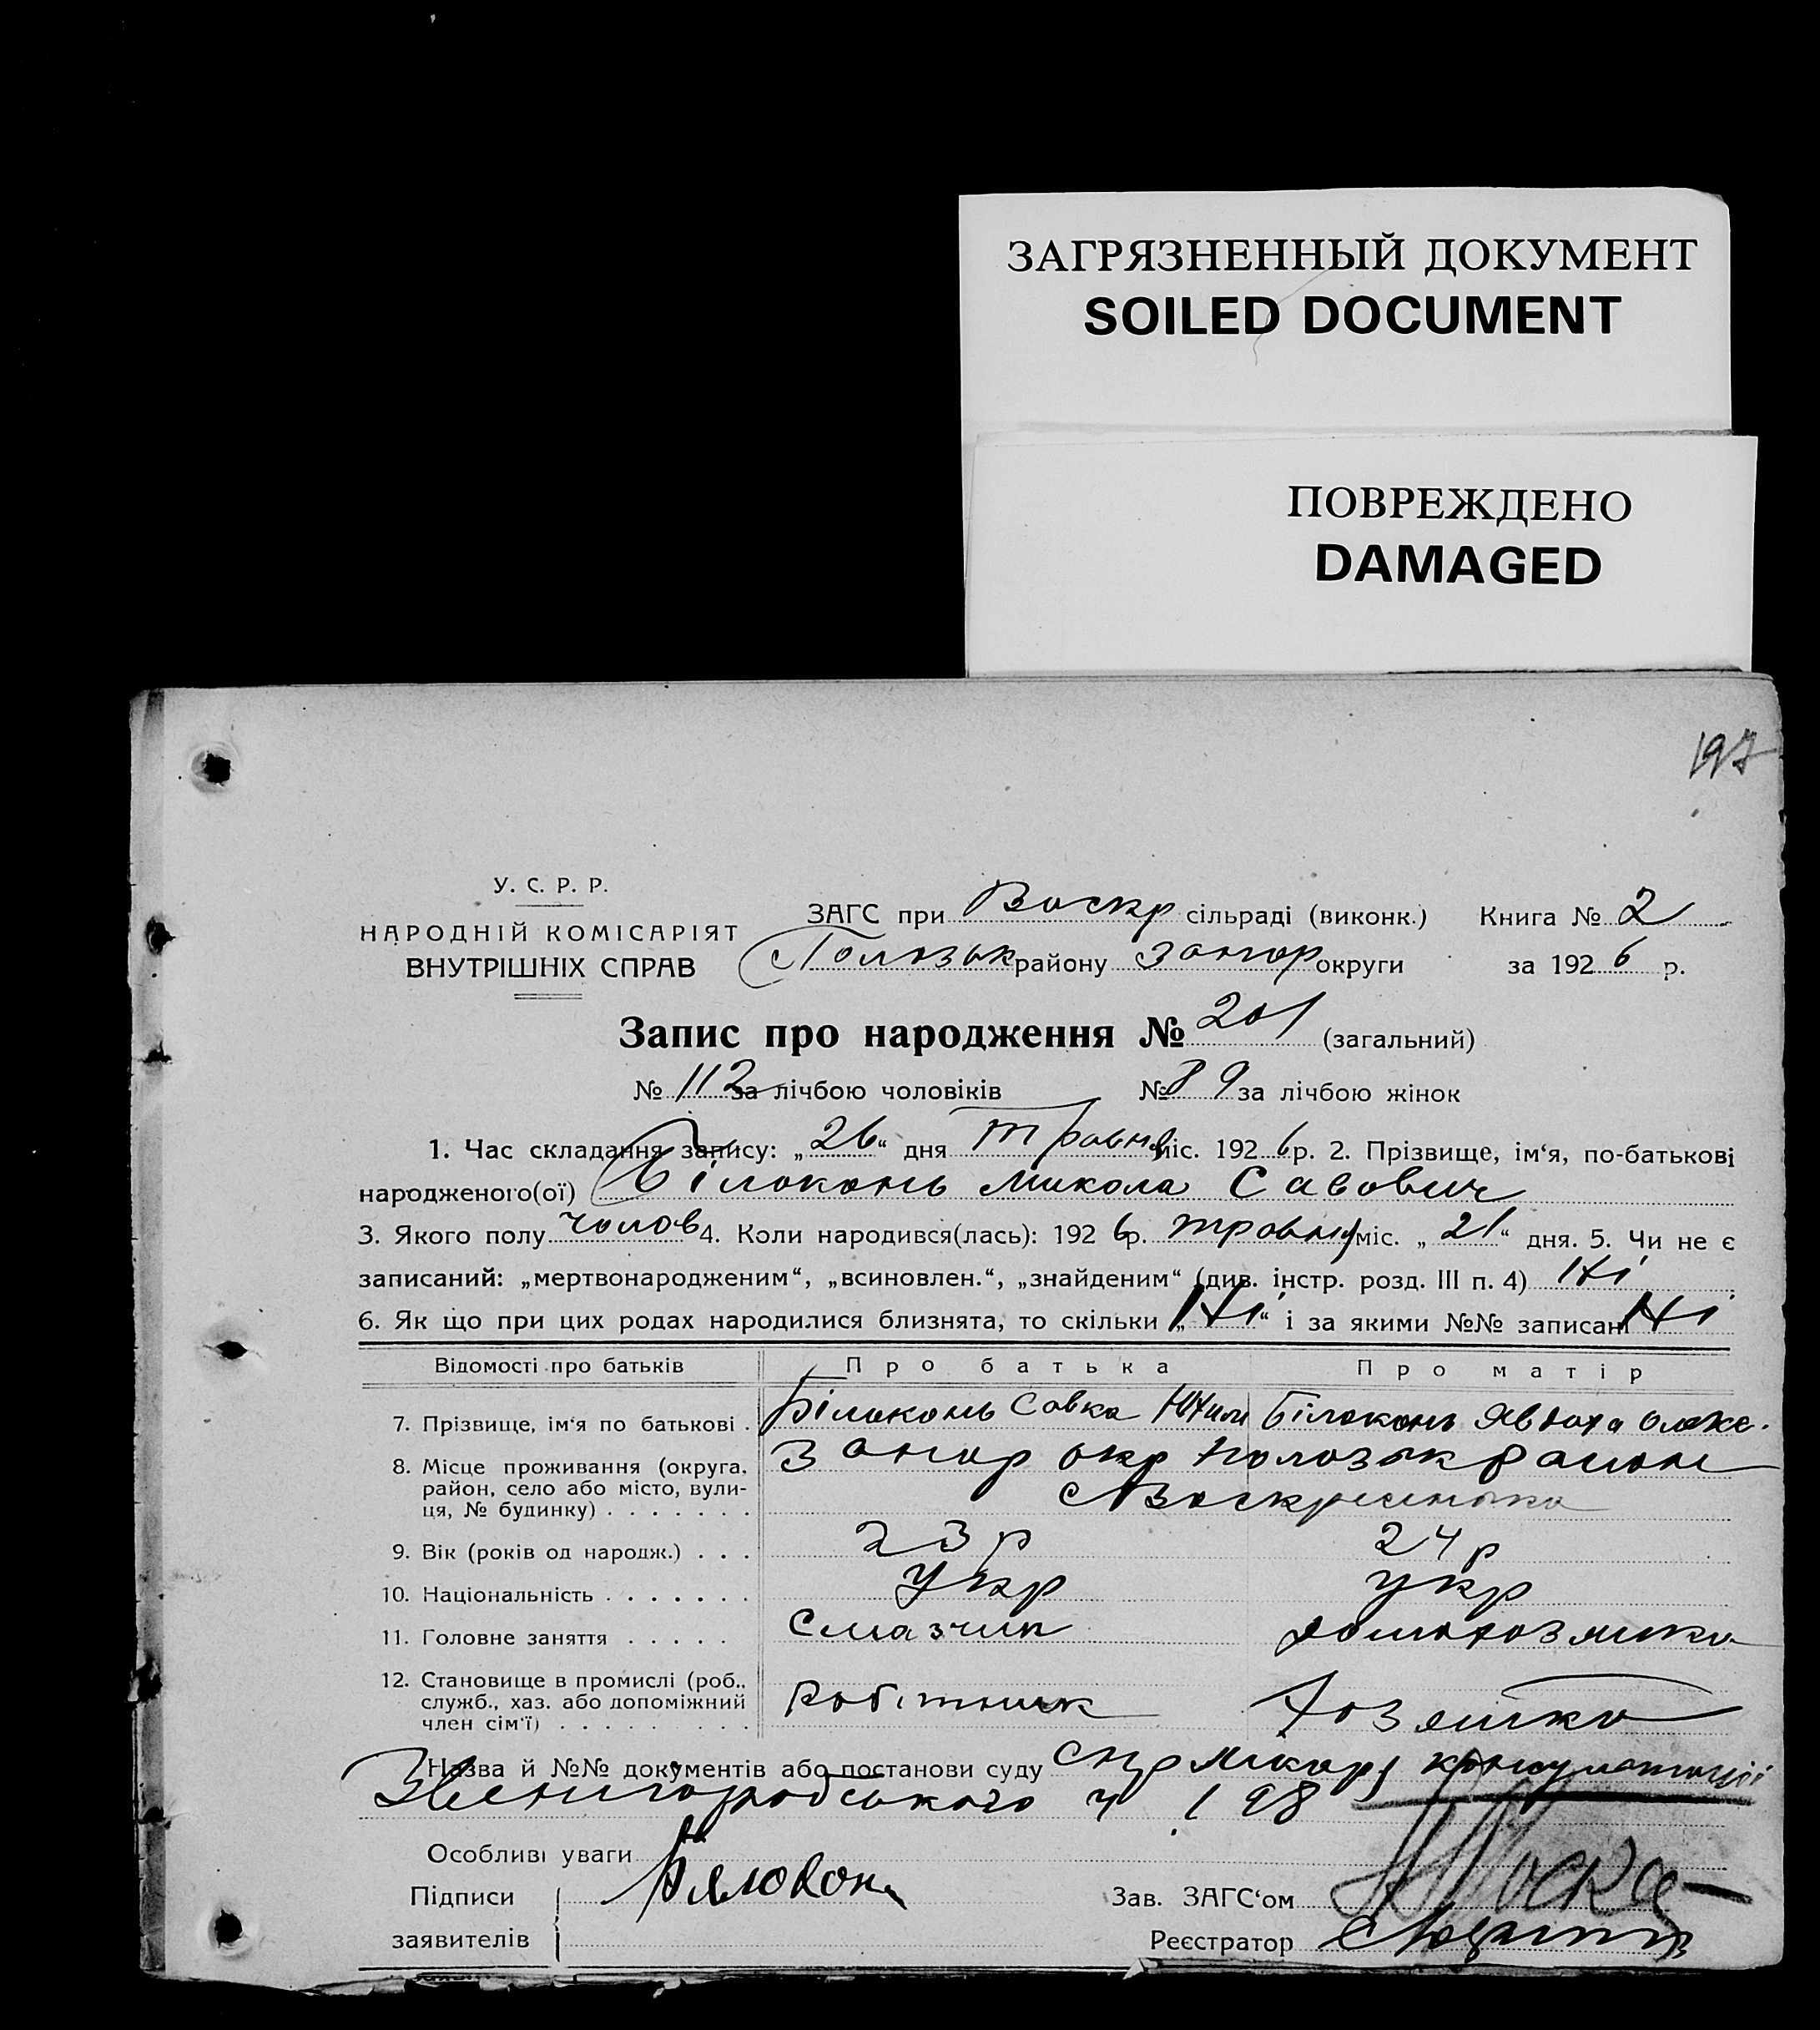 ЗАГРЯЗНЕННЫЙ ДОКУМЕНТ
SOILED DOCUMENT
ПОВРЕЖДЕНО
DAMAGED
197
У. С. Р. Р.
НАРОДНІЙ КОМІСАРІЯТ
ВНУТРІШНІХ СПРАВ
ЗАГС при Воскр сільраді (виконк.) Книга № 2
Пологськ району Запор округи за 1926 р.
Запис про народження № 201 (загальний)
№ 112 за лічбою чоловіків № 89 за лічбою жінок
1. Час складання запису: „26“ дня травня міс. 1926 р. 2. Прізвище, ім‘я, по-батькові
народженого(ої) Білоконь Микола Савович
3. Якого полу чолов 4. Коли народився(лась): 1926 р. травня міс. „21“ дня. 5. Чи не є
записаний: „мертвонародженим“, „всиновлен.“, „знайденим“ (див. інстр. розд. III п. 4) Ні
6. Як що при цих родах народилися близнята, то скільки „Ні“ і за якими №№ записані Ні
Відомості про батьків Про батька Про матір
7. Прізвище, ім‘я по батькові . Білоконь Савка Юхим Білоконь Явдоха Олекс.
8. Місце проживання (округа, Запор окр Пологськ район
район, село або місто, вули-
ця, № будинку) . . . . . . . с Воскресенька
9. Вік (років од народж.) . . . 23 р 24 р
10. Національність . . . . . . . укр укр
11. Головне заняття . . . . . Смазчик домохозяйка
12. Становище в промислі (роб.,
служб., хаз. або допоміжний Робітник Хозяйка
член сім‘ї) . . . . . . . . .
Назва й №№ документів або постанови суду лікаря консультації
Звенигородського ч 198
Особливі уваги
Підписи Зав. ЗАГС‘ом
заявителів Реєстратор